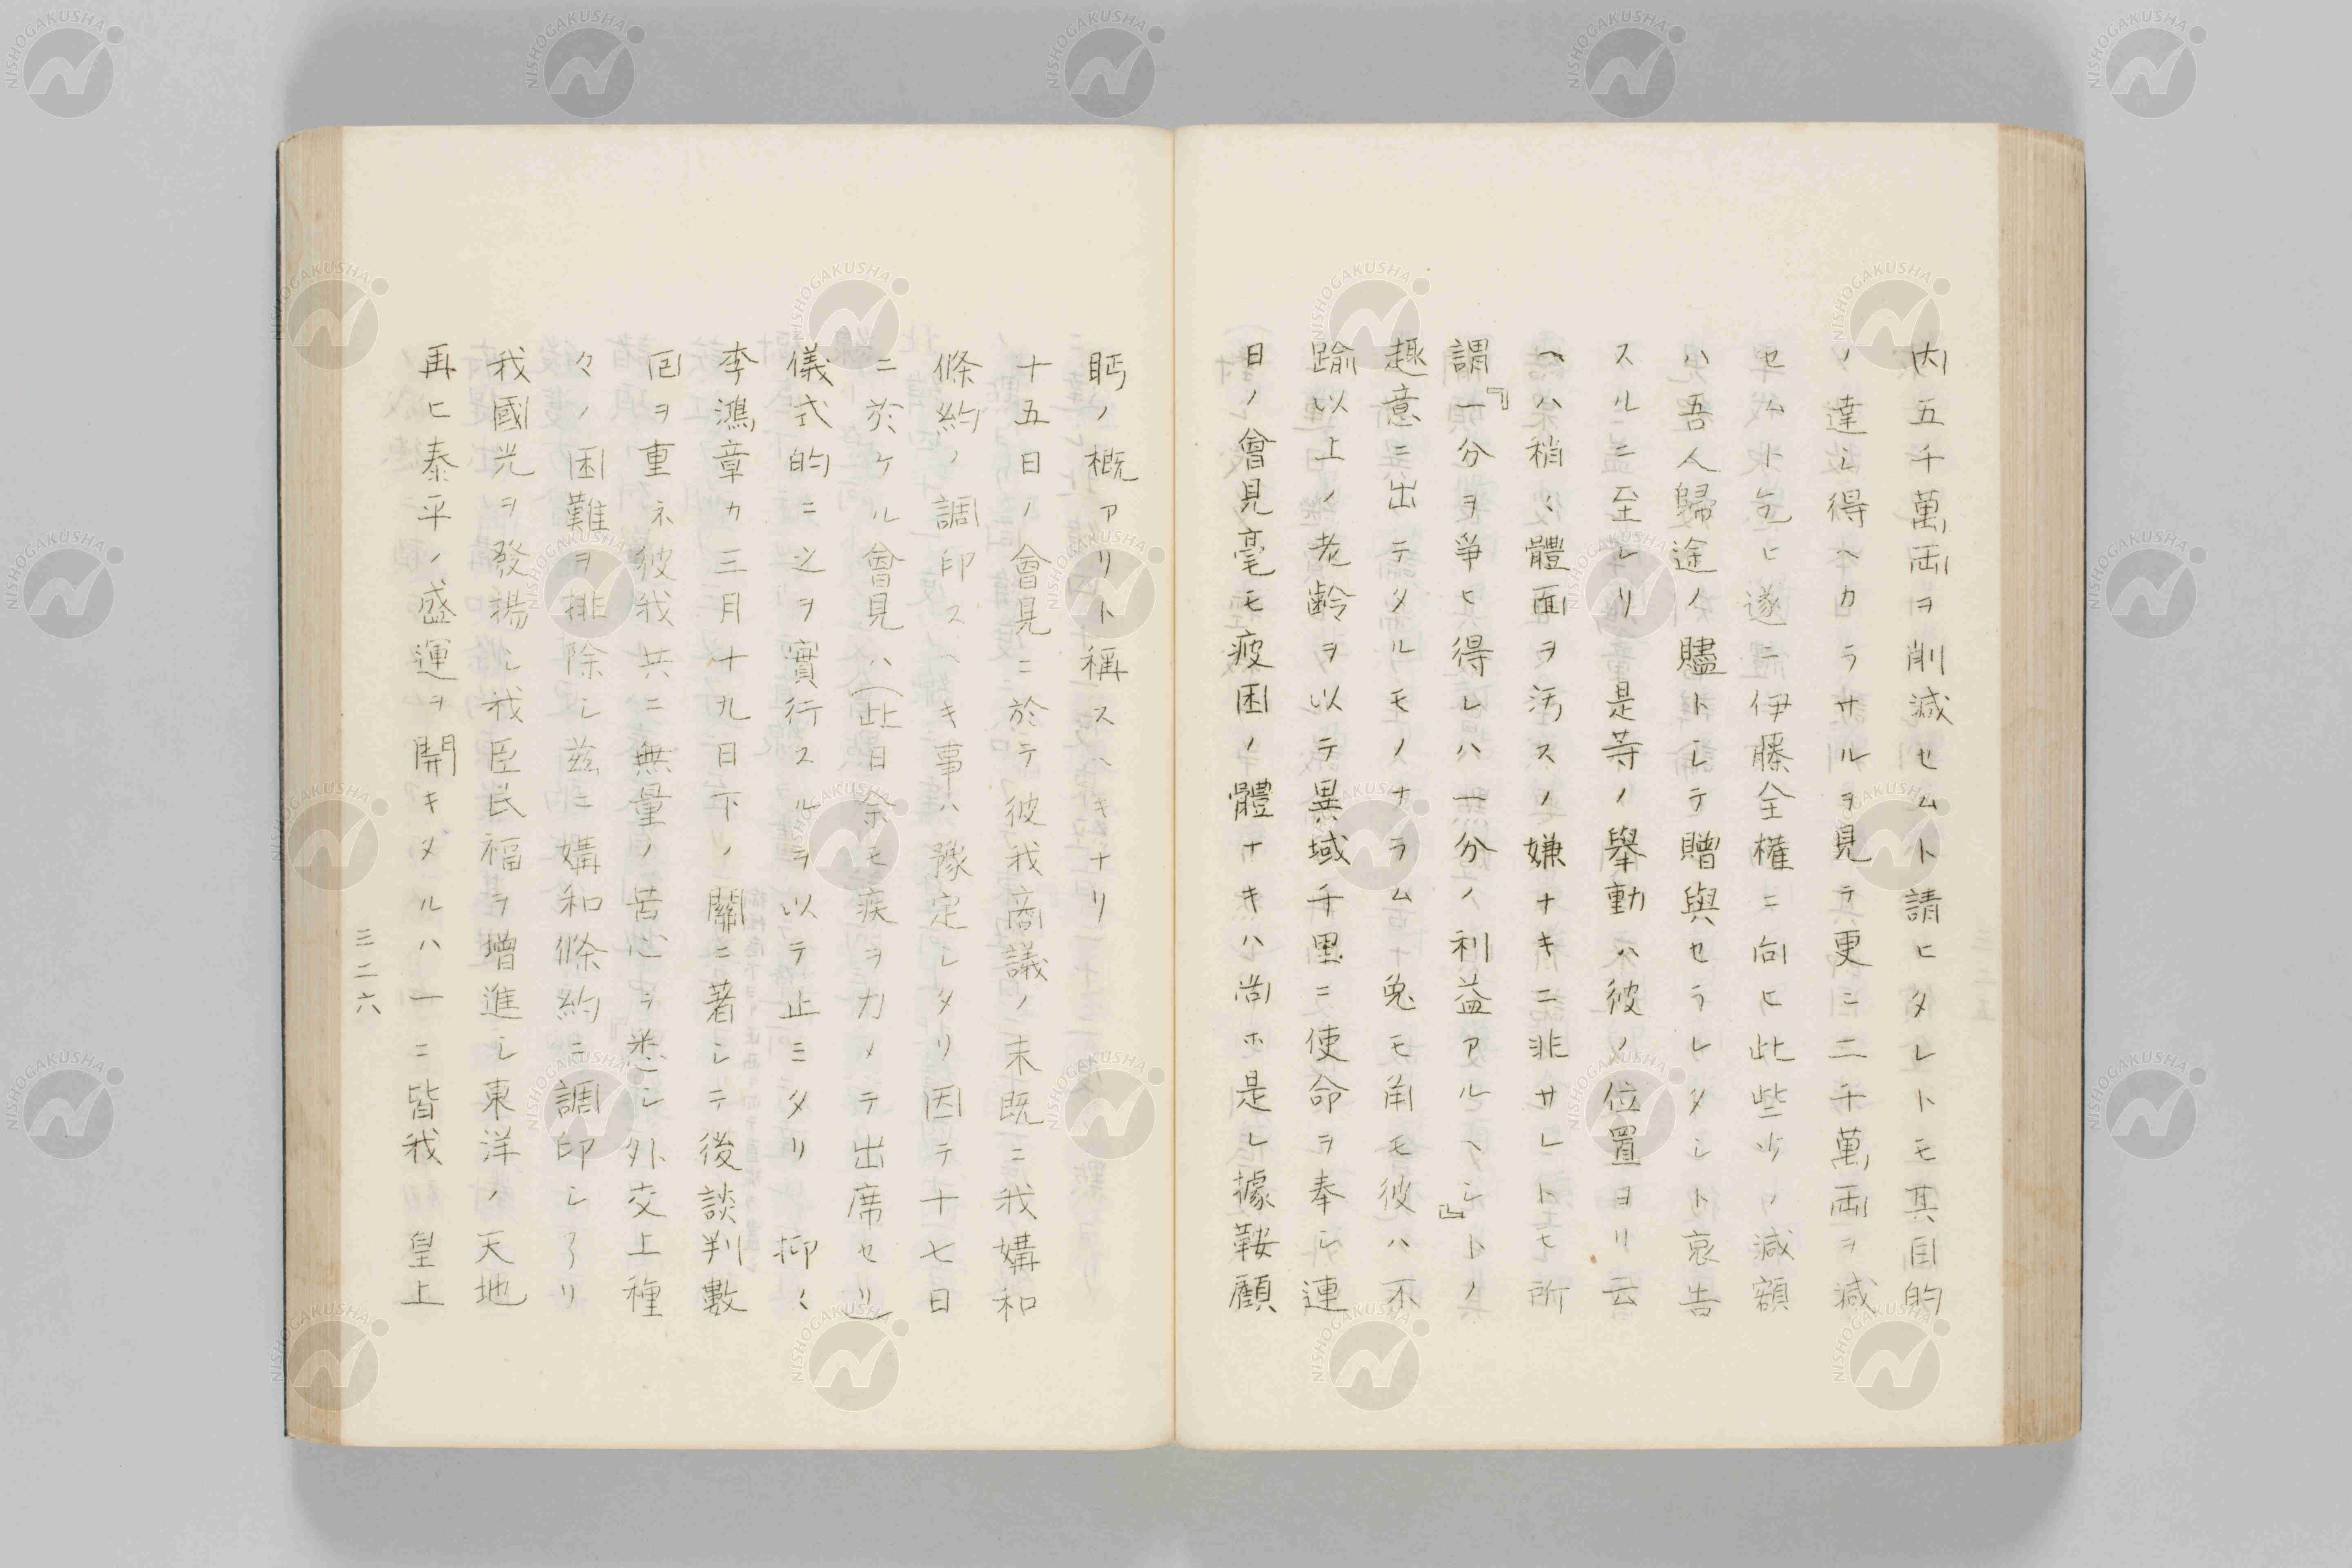 内五千萬両ヲ削減セムト請ヒタレトモ其目的
ノ達シ得ヘカラサルヲ見テ更ニ二千萬両ヲ減
セムト乞ヒ遂ニ伊藤全權ニ向ヒ此些少ノ減額
ハ吾人歸途ノ贐トシテ贈與セラレタシト哀告
スルニ至レリ是等ノ擧動ハ彼ノ位置ヨリ云
ヘハ稍〻體面ヲ汚スノ嫌ナキニ非サレトモ所
謂『一分ヲ爭ヒ得レハ一分ノ利益アルヘシ』トノ
趣意ニ出テタルモノナラム兎モ角モ彼ハ不
踰以上ノ老齡ヲ以テ異域千里ニ使命ヲ奉シ連
日ノ會見毫モ疲困ノ體ナキハ尚ホ是レ據鞍顧
眄ノ概アリト稱スヘキナリ
十五日ノ會見ニ於テ彼我商議ノ末既ニ我媾和
條約ノ調印スヘキ事ハ豫定シタリ因テ十七日
ニ於ケル會見ハ(此日余モ疾ヲ力メテ出席セリ)
儀式的ニ之ヲ實行スルヲ以テ止ミタリ抑〻
李鴻章カ三月十九日下ノ關ニ著シテ後談判數
回ヲ重ネ彼我共ニ無量ノ苦心ヲ悉シ外交上種
々ノ困難ヲ排除シ茲ニ媾和條約ニ調印シ了リ
我國光ヲ發揚シ我臣民福ヲ增進シ東洋ノ天地
再ヒ泰平ノ盛運ヲ開キタルハ一ニ皆我 皇上
三二六
NISHOGAKUSHA